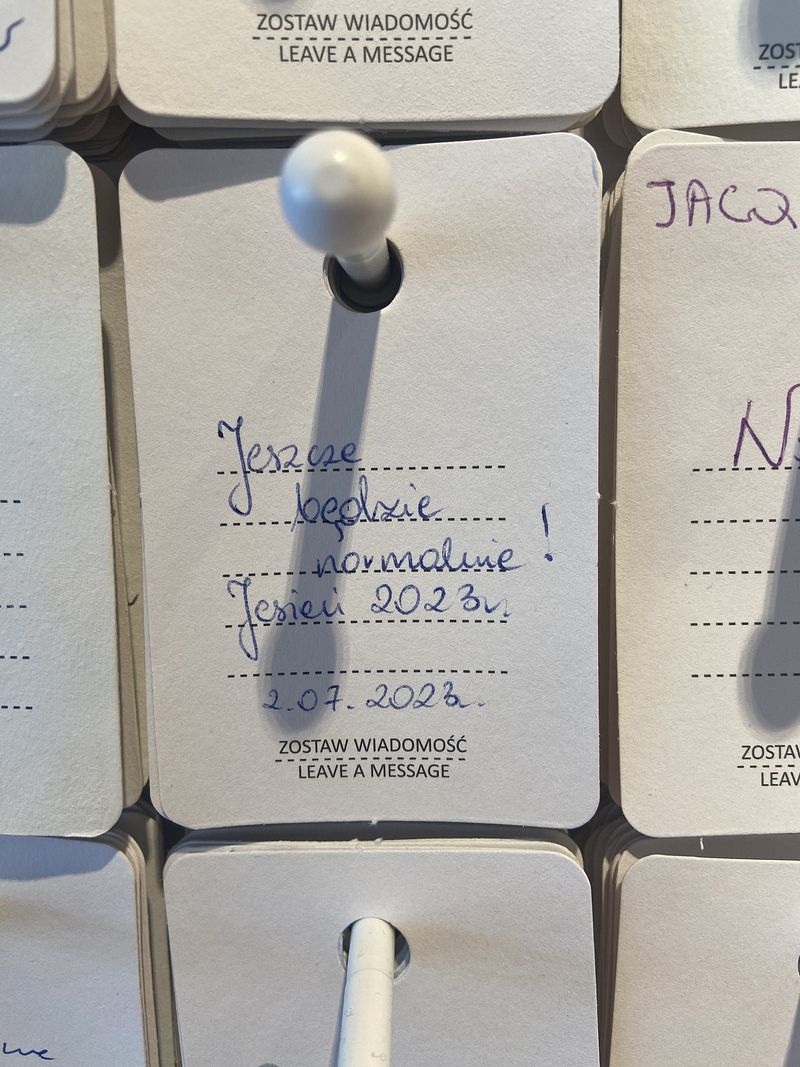 ZOSTAW WIADOMOŚĆ
LEAVE A MESSAGE
JACQ
Jeszcze
będzie
normalnie!
Jesień 2023r.
2.07.2023r.
ZOSTAW WIADOMOŚĆ
LEAVE A MESSAGE